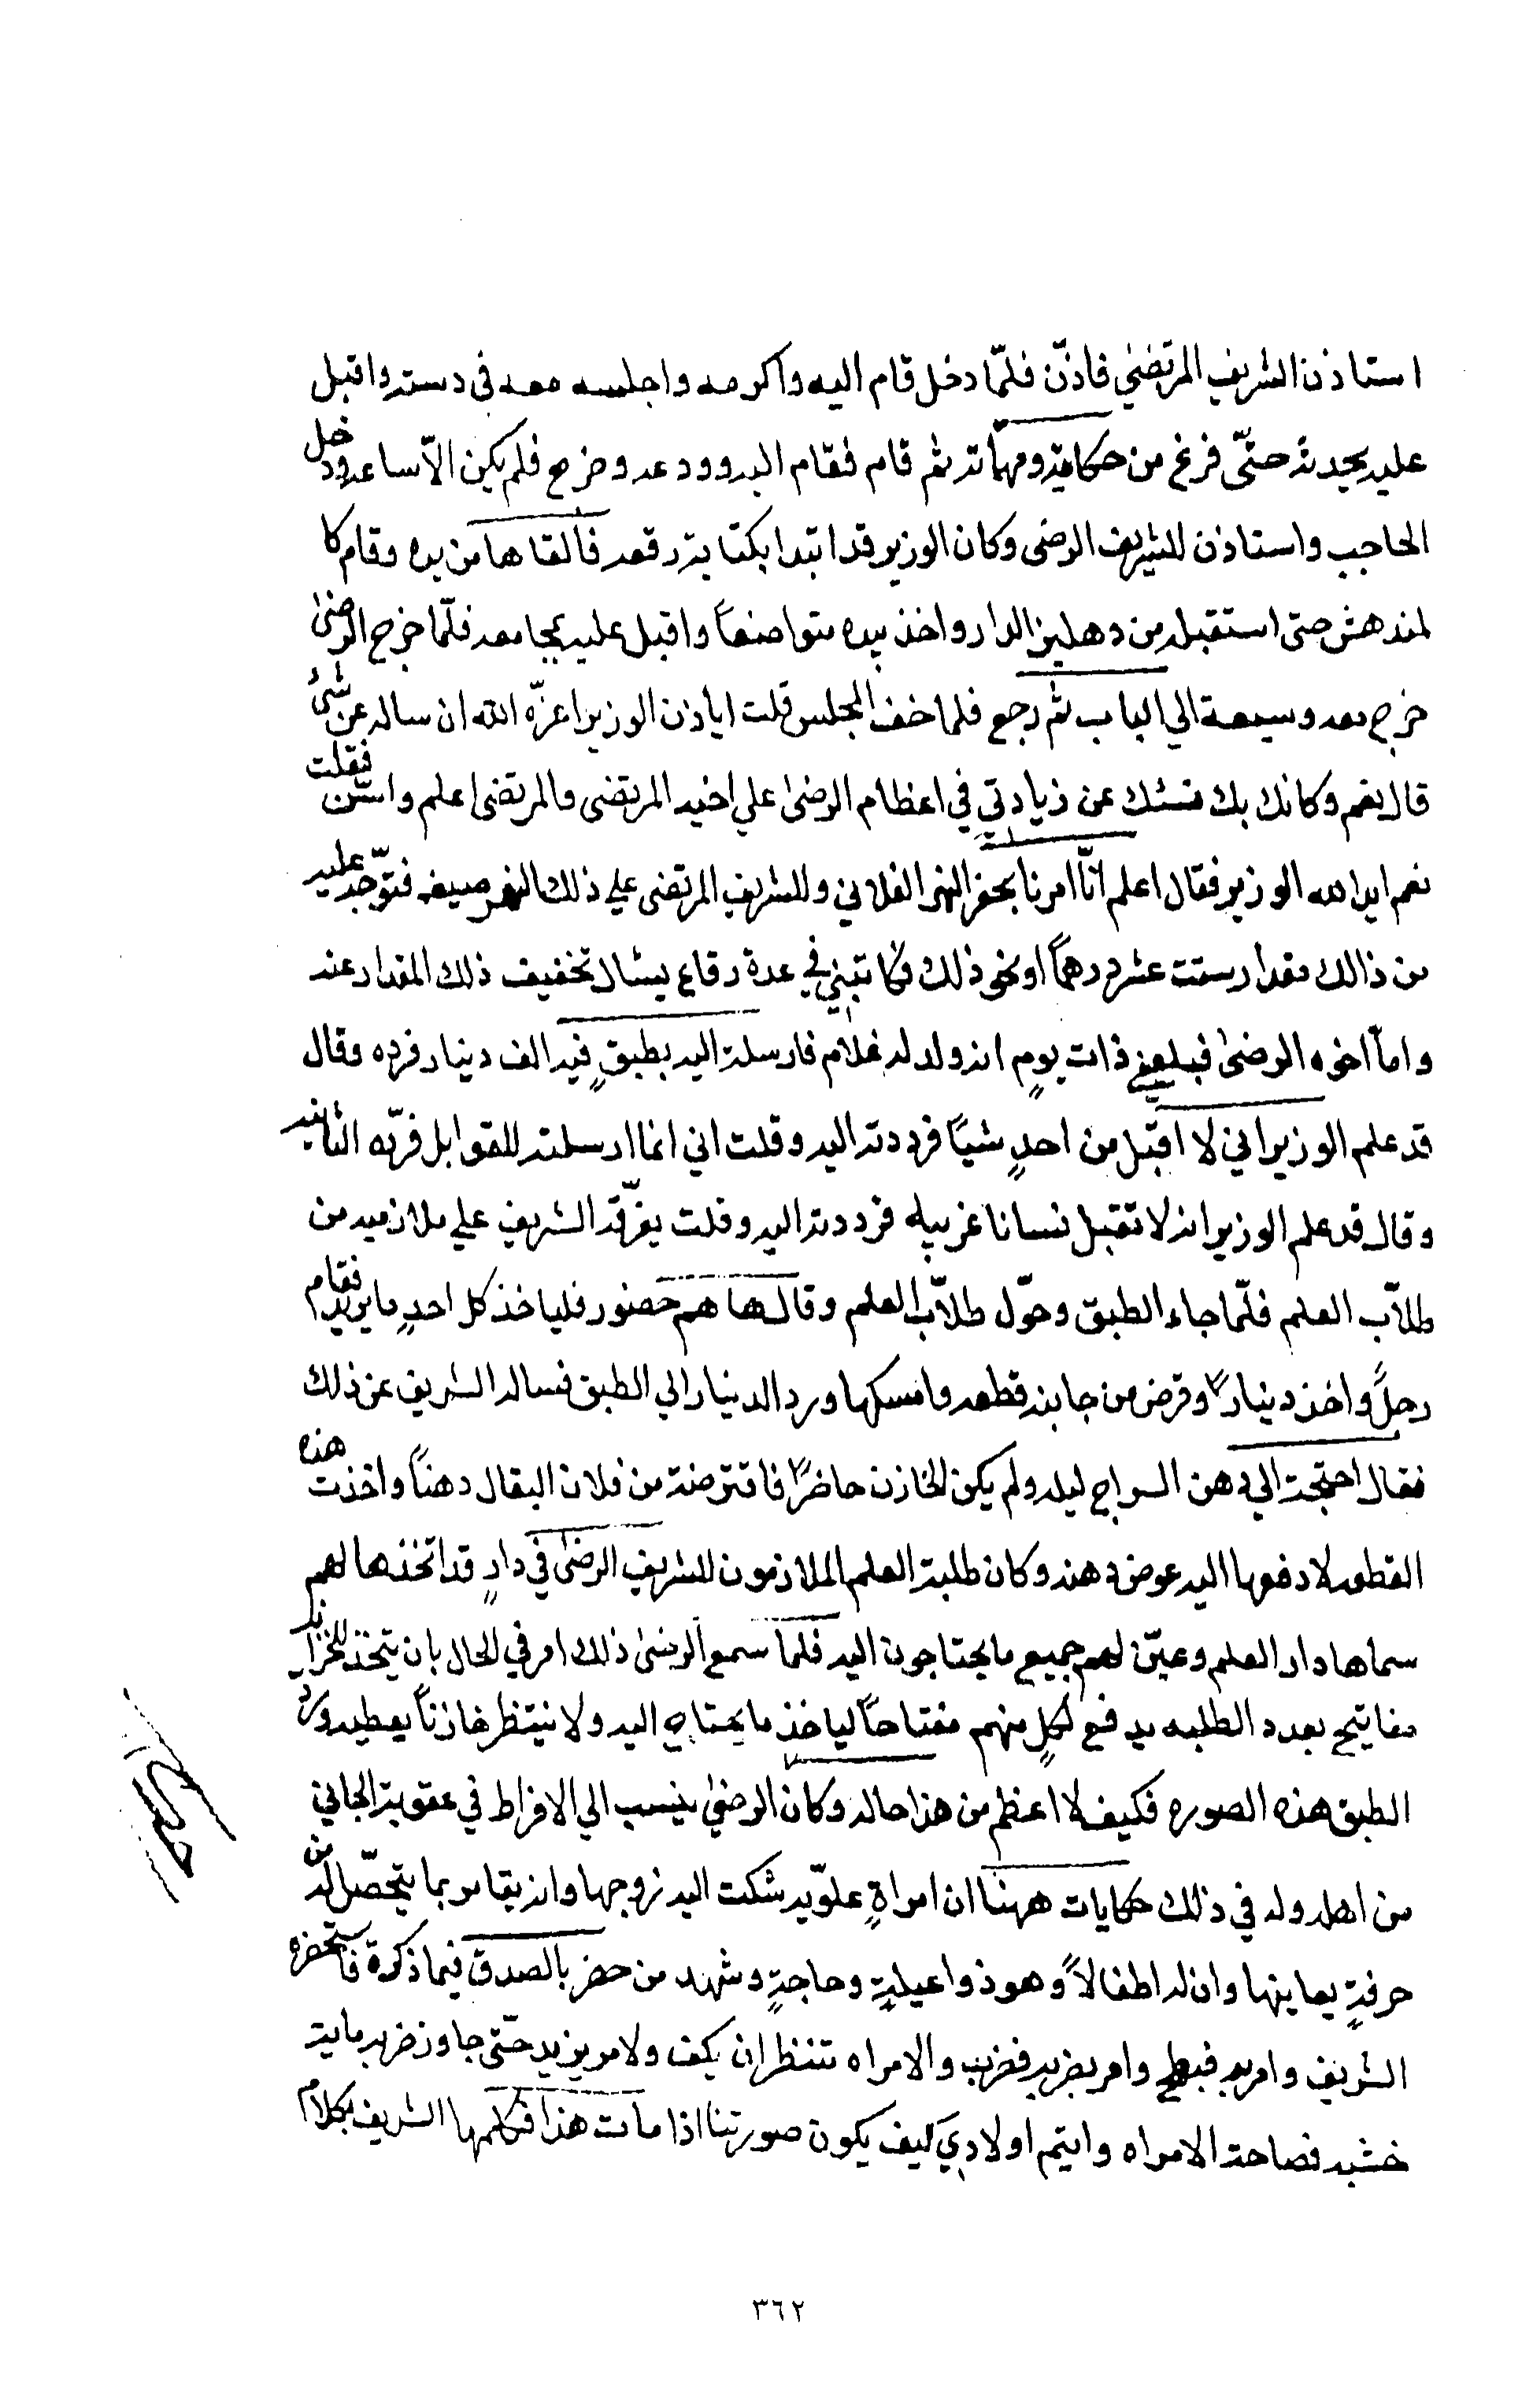 استاذن الشريف المرتضىٰ فاذّن فلمّا دخل قام اليه واكرمه واجلسه معه فى دسته واقبل
عليه يحدثه حتّى فرغ من حكايته ومهمّاته ثم قام فقام اليه وودعه وخرج فلم يكن الاّ ساعه ودخل
الحاجب واستاذن للشريف الرضى وكان الوزير قد ابتدا بكتابة رقعه فالقاها من يده وقام كا
لمندهش حتى استقبله من دهليز الدار واخذ بيده متواضعاً واقبل عليه بمجامعه فلمّا خرج الرضىٰ
خرج معه وسيعة الي الباب ثم رجع فلما خف المجلس قلت اياذن الوزير اعزّه الله ان ساله عن شئ
قال نعم وكانك بك تسئلك عن زيادتي في اعظام الرضىٰ علي اخيه المرتضى والمرتضى اعلم واسّن فقلت
نعم ايد الله الوزير فقال اعلم انّا امرنا بحفر النهر الفلاني وللشريف المرتضى علي ذلك النهر صيعه فتوّجه عليه
من ذالك مقدار ستت عشر درهماً او نحو ذلك فكاتبني في عدة رقاع يسال تخفيف ذلك المقدار عنه
واماّ اخوه الرضىٰ فبلعني ذات يومٍ انه ولد له غلام فارسلت اليه بطبقٍ فيه الف دينار فرده وقال
قد علم الوزير اني لا اقبّل من احدٍ شيًا فرددته اليه وقلت اني انما ارسلته للقوابل فرّده الثانيه
وقال قد علم الوزير انه لا تقبل نسانا غريبه فرددته اليه وقلت يفرّقه الشريف علي ملازميه من
طلاّب العلم فلمّا جاء الطبق وحوّل طلاّب العلم وقال ها هم حضور فلياخذ كل احدٍ ما يريد فقام
رجلً واخذ ديناراً وقرض من جانبه قطعه وامسكها ورد الدينار الي الطبق فساله الشريف عن ذلك
فقال احتجت الي دهن السراج ليله ولم يكن الخازن حاضراً فاقترضت من فلان البقال دهناً واخذت هذه
القطعه لادفعها اليه عوض دهنه وكان طلبة العلم الملازمون للشريف الرضىٰ في دارٍ قد اتخذها لهم
سماها دار العلم وعيّن لهم جميع ما يحتاجون اليه فلما سمع الرضىٰ ذلك امر في الحال بان يتخذ للخزانه
مفاتيح بعدد الطلبه يدفع لكلٍ منهم مفتاحاً لياخذ ما يحتاج اليه ولا ينتظر خازناً يعطيه ورد
الطبق هذه الصوره فكيف لا اعظم من هذا حاله وكان الرضىٰ ينسب الي الافراط في عقوبة الجاني
من اهله وله في ذلك حكايات ههنا ان امراةٍ علوّيه شكت اليه زوجها وانه يقامر بما يتحصّل له من
حرفةٍ يعاينها وان له اطفالاً وهو ذوا عيلةٍ وحاجةٍ وشهد من حضر بالصدق فيما ذكرة فاستحضره
الشريف وامر به فبطح وامر بضربه فضرب والامراه تنتظر ان يكف والامر يزيد حتّى جاوز ضربه ماية
خشبه فصاحت الامراه وايتم اولادي كيف يكون صورتنا اذا مات هذا فكلمها الشريف بكلام
٣٦٢